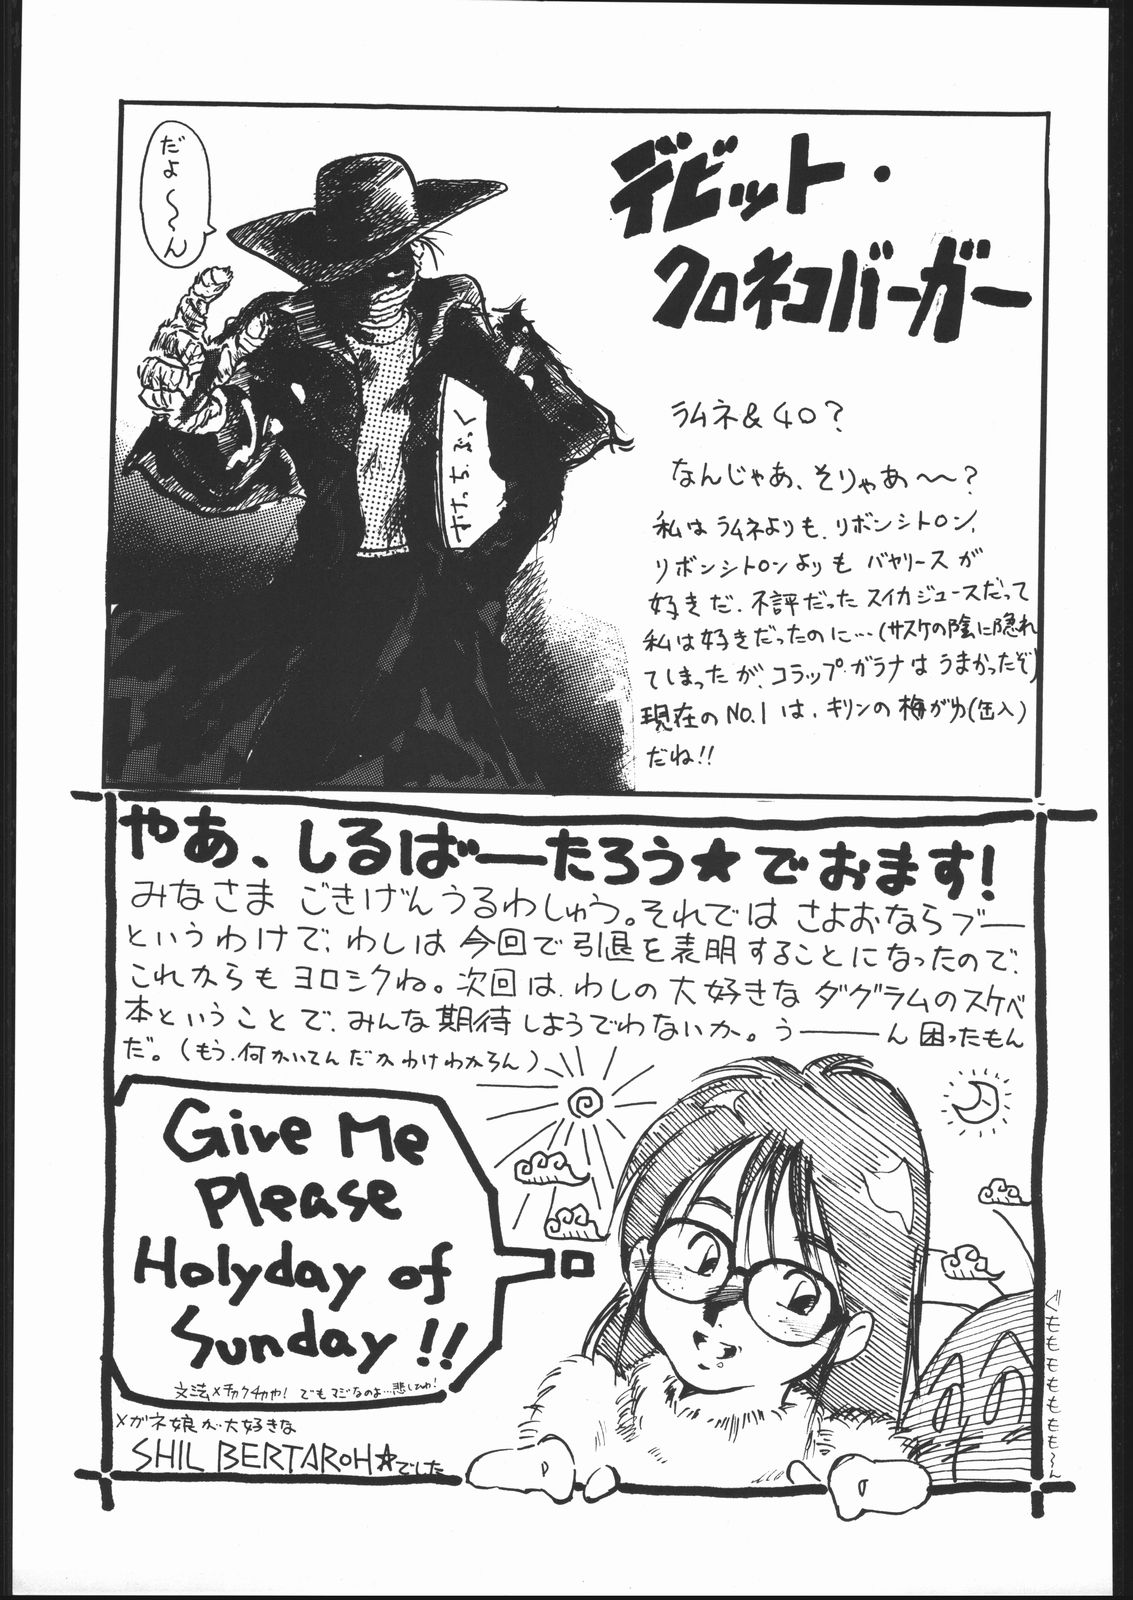 だよ〜〜ん
デビット・
クロネコバーガー
すけっちぶっく
ラムネ&40?
なんじゃあ、そりゃあ〜〜?
私はラムネよりも、リボンシトロン、
リボンシトロンよりも バヤリースが
好きだ、不評だった スイカジュースだって
私は好きだったのに…(サスケの陰に隠れ
てしまったが、コラップ・ガラナはうまかったぞ)
現在のNo.1は、キリンの梅がり(缶入)
だね!!
やあ、しるばーたろう★でおます!
みなさま ごきげんうるわしゅう。それでは さよおならブー
というわけで、わしは 今回で引退を表明することになったので、
これからも ヨロシクね。次回は、わしの大好きな ダグラムのスケベ
本ということで、みんな期待しようでわないか。う——ん 困ったもん
だ。(もう、何かいてんだかわけわからん)
Give Me
Please
Holyday of
Sunday!!
文法メチャクチャや! でもマジなのよ…悲しいわ!
メガネ娘が大好きな
SHIL BERTAROH☆でした
ぐももももももも〜ん